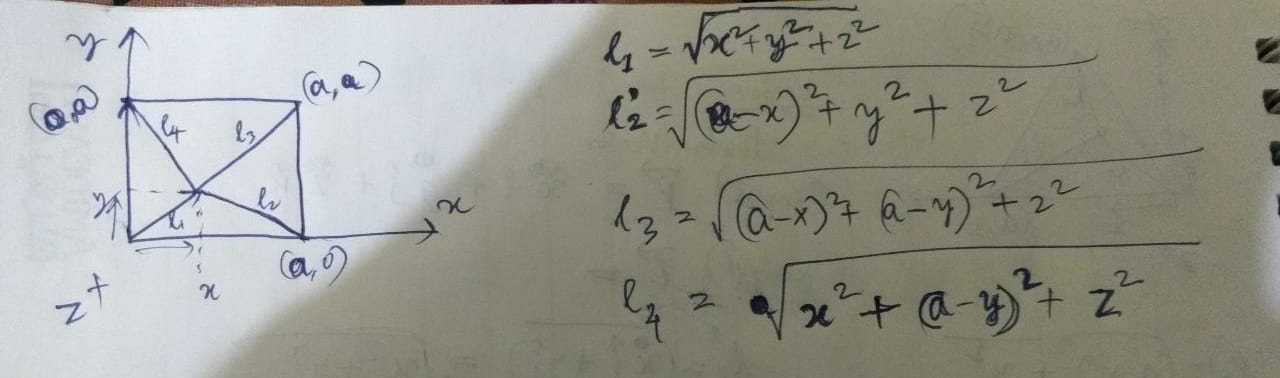 y
(0,a)
(a,a)
l4
l3
y
l1
l2
x
x
(a,0)
z+
l1 = √x²+y²+z²
l2 = √(a-x)²+ y² + z²
l3 = √(a-x)²+ (a-y)²+z²
l4 = √x² + (a-y)²+ z²